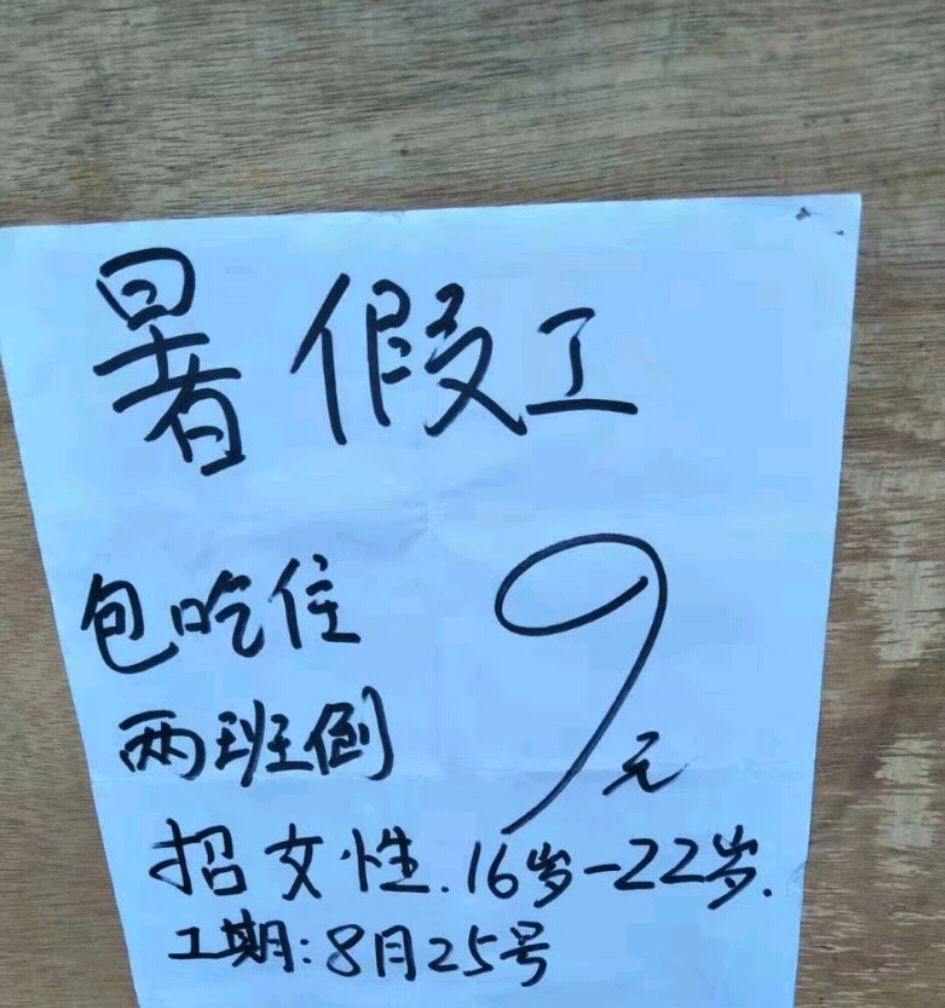 暑假工
包吃住
9元
两班倒
招女性.16岁-22岁.
工期:8月25号